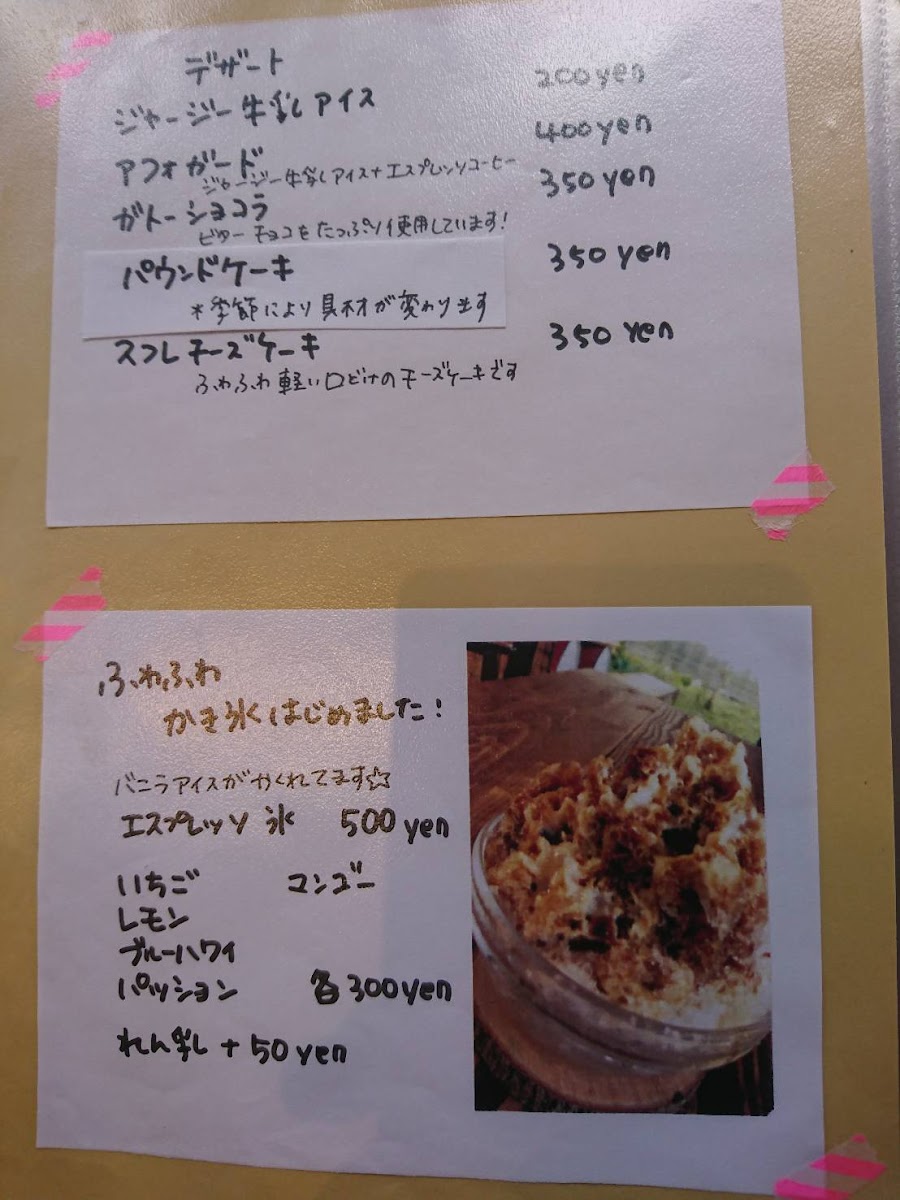 デザート
ジャージー牛乳アイス 200yen
アフォガード 400yen
ジャージー牛乳アイス+エスプレッソコーヒー
ガトーショコラ 350yen
ビターチョコをたっぷり使用しています!
パウンドケーキ 350yen
*季節により具材が変わります
スフレチーズケーキ 350yen
ふわふわ軽い口どけのチーズケーキです
ふわふわ
かき氷はじめました!
バニラアイスがかくれてます☆
エスプレッソ氷 500yen
いちご マンゴー
レモン
ブルーハワイ
パッション 各300yen
れん乳+50yen